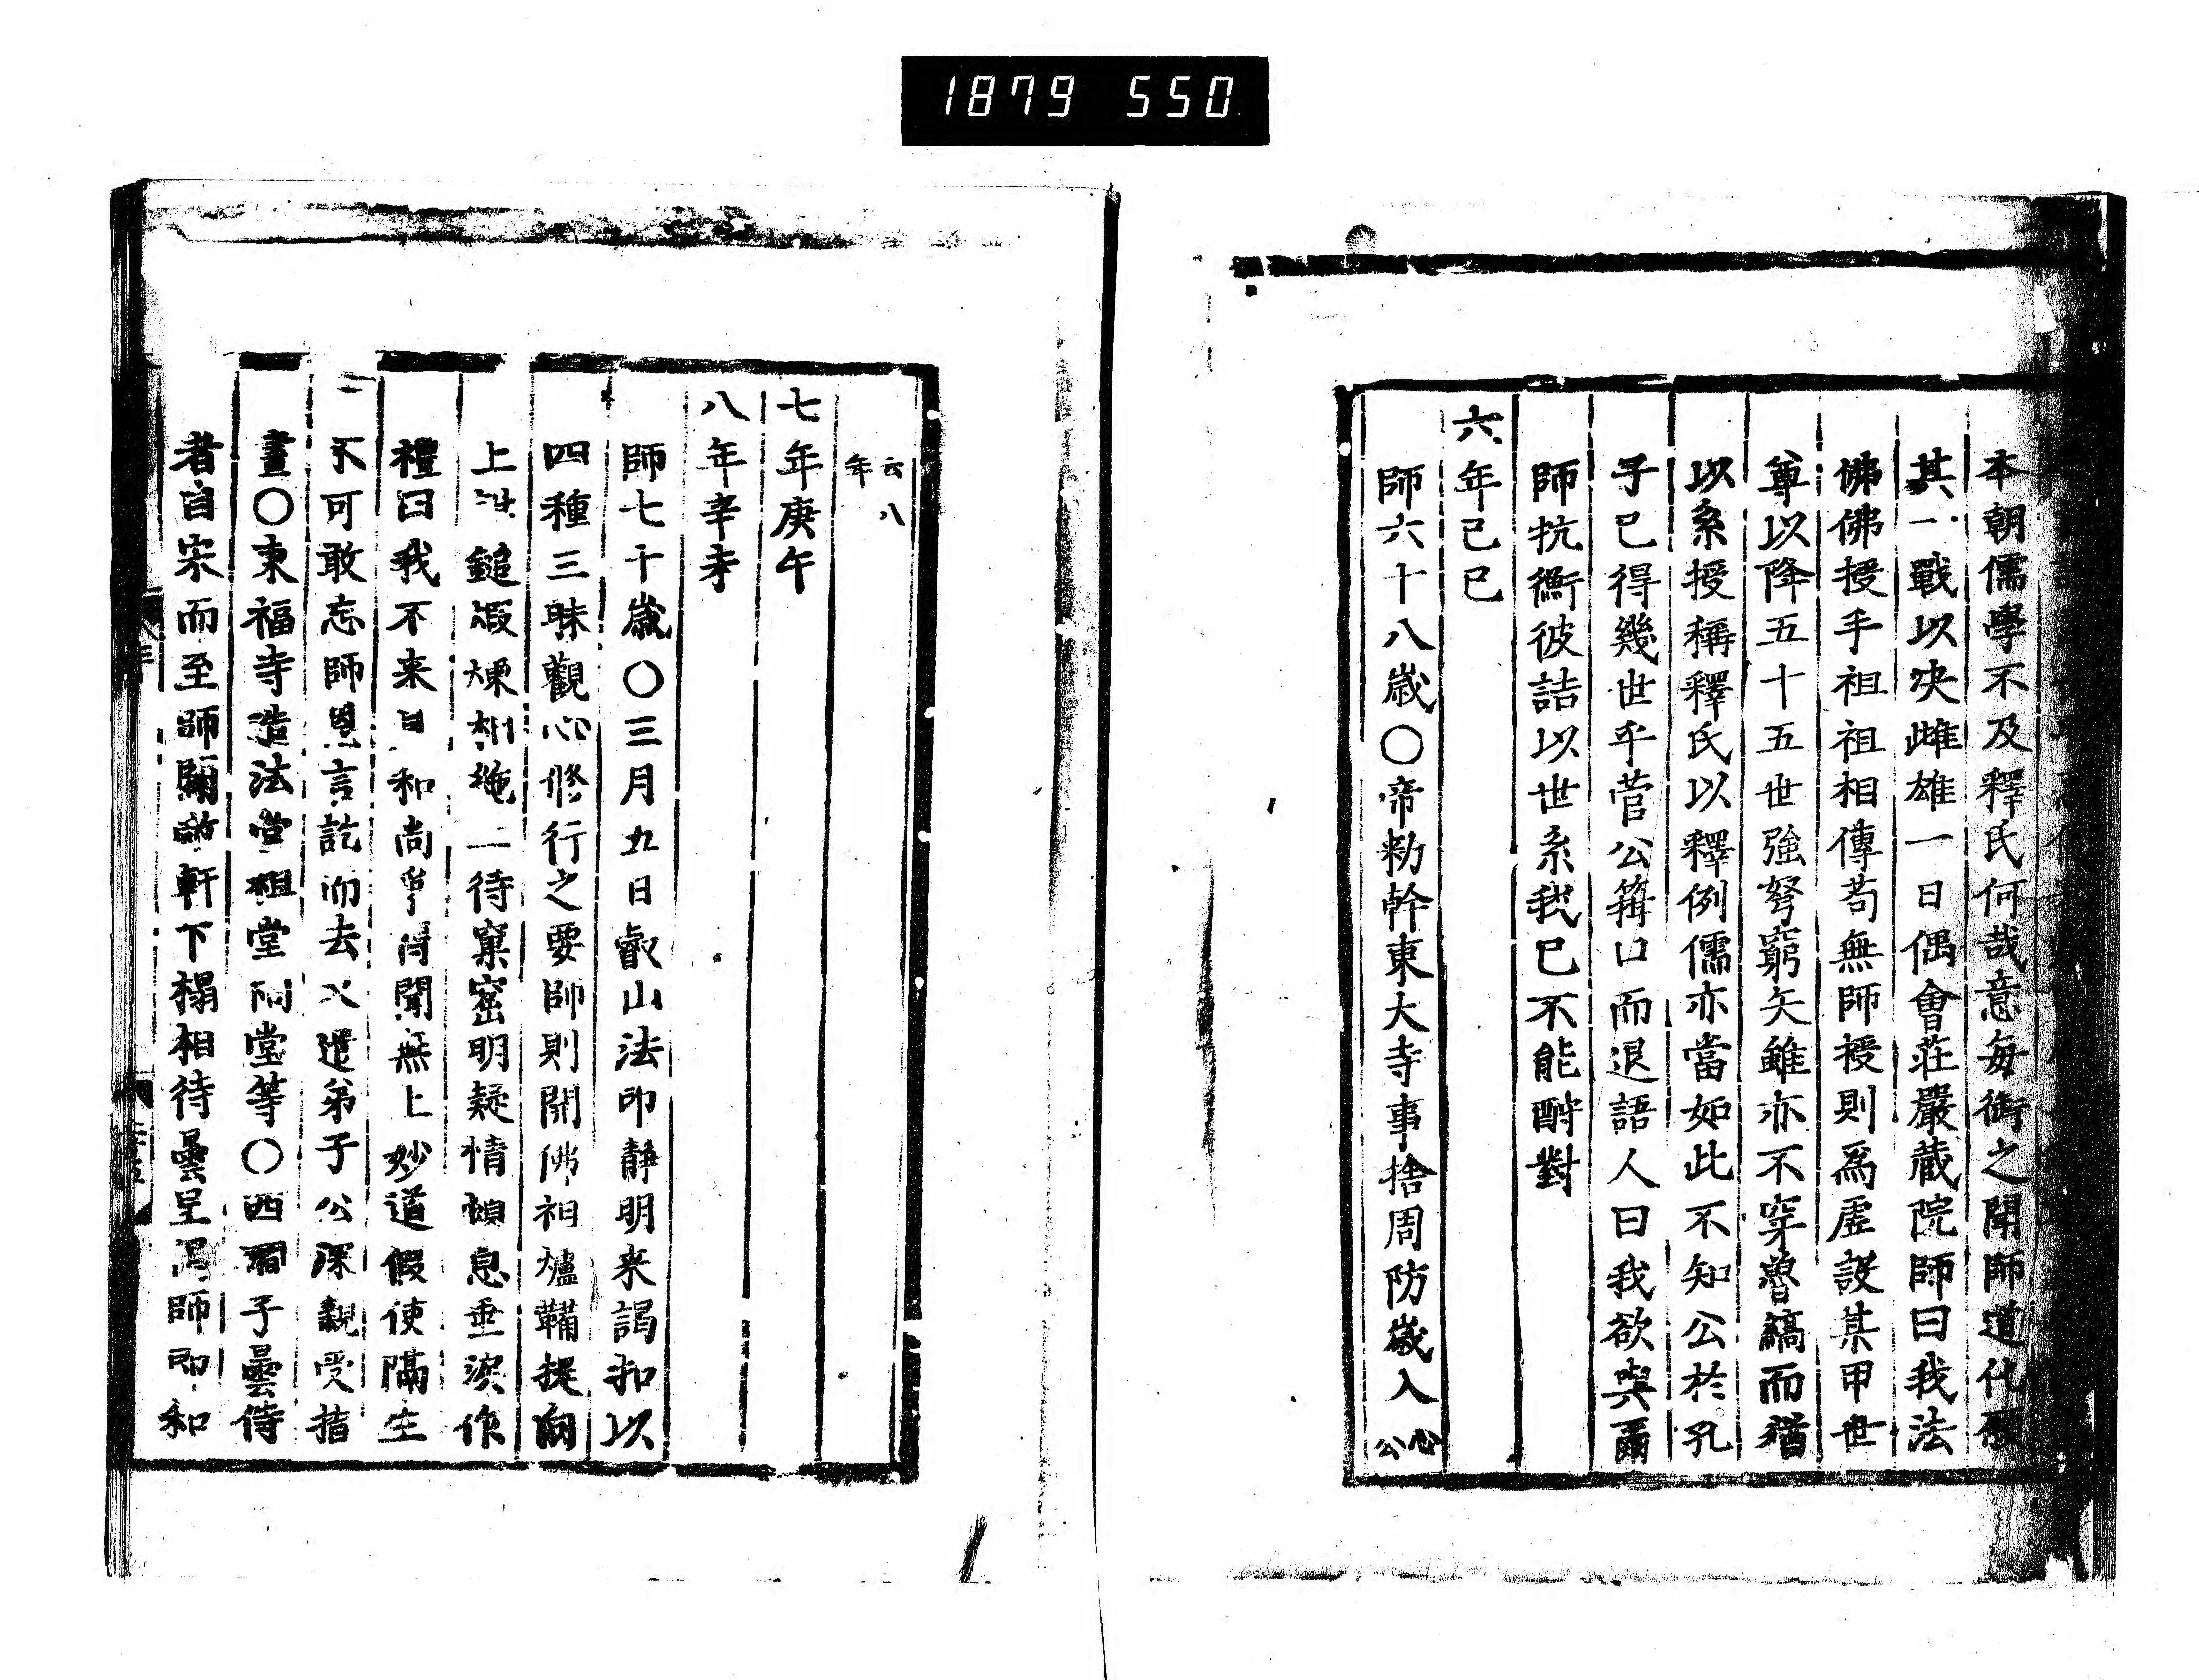 1879 550
本朝儒學不及釋氏何哉意每銜之聞師道化
其一戰以決雌雄一日偶會莊嚴蔵院師曰我法
佛佛授手祖祖相傳苟無師授則爲虛設某甲世
尊以降五十五世強弩窮矢雖亦不穿魯縞而猶
以系授稱釋氏以釋例儒亦當如此不知公於孔
子已得幾世乎菅公箝口而退語人曰我欲與爾
師抗衡彼詰以世系我已不能酧對
六年己巳
師六十八歲〇帝勑幹東大寺事捨周防歲入
心
公
云八
年
七年庚午
八年辛未
師七十歲〇三月九日叡山法印靜明来謁扣以
四種三昧觀心修行之要師則開佛祖爐鞴提向
上 鎚煆煉相 一二待窠窟明疑情頓息垂淚作
禮曰我不来日和尚爭得聞無上妙道假使隔生
不可敢忘師恩言訖而去又遣弟子公深親受指
畫〇東福寺造法堂祖堂祠堂等〇西澗子曇侍
者自宋而至師 軒下榻相待曇呈 師師卽和